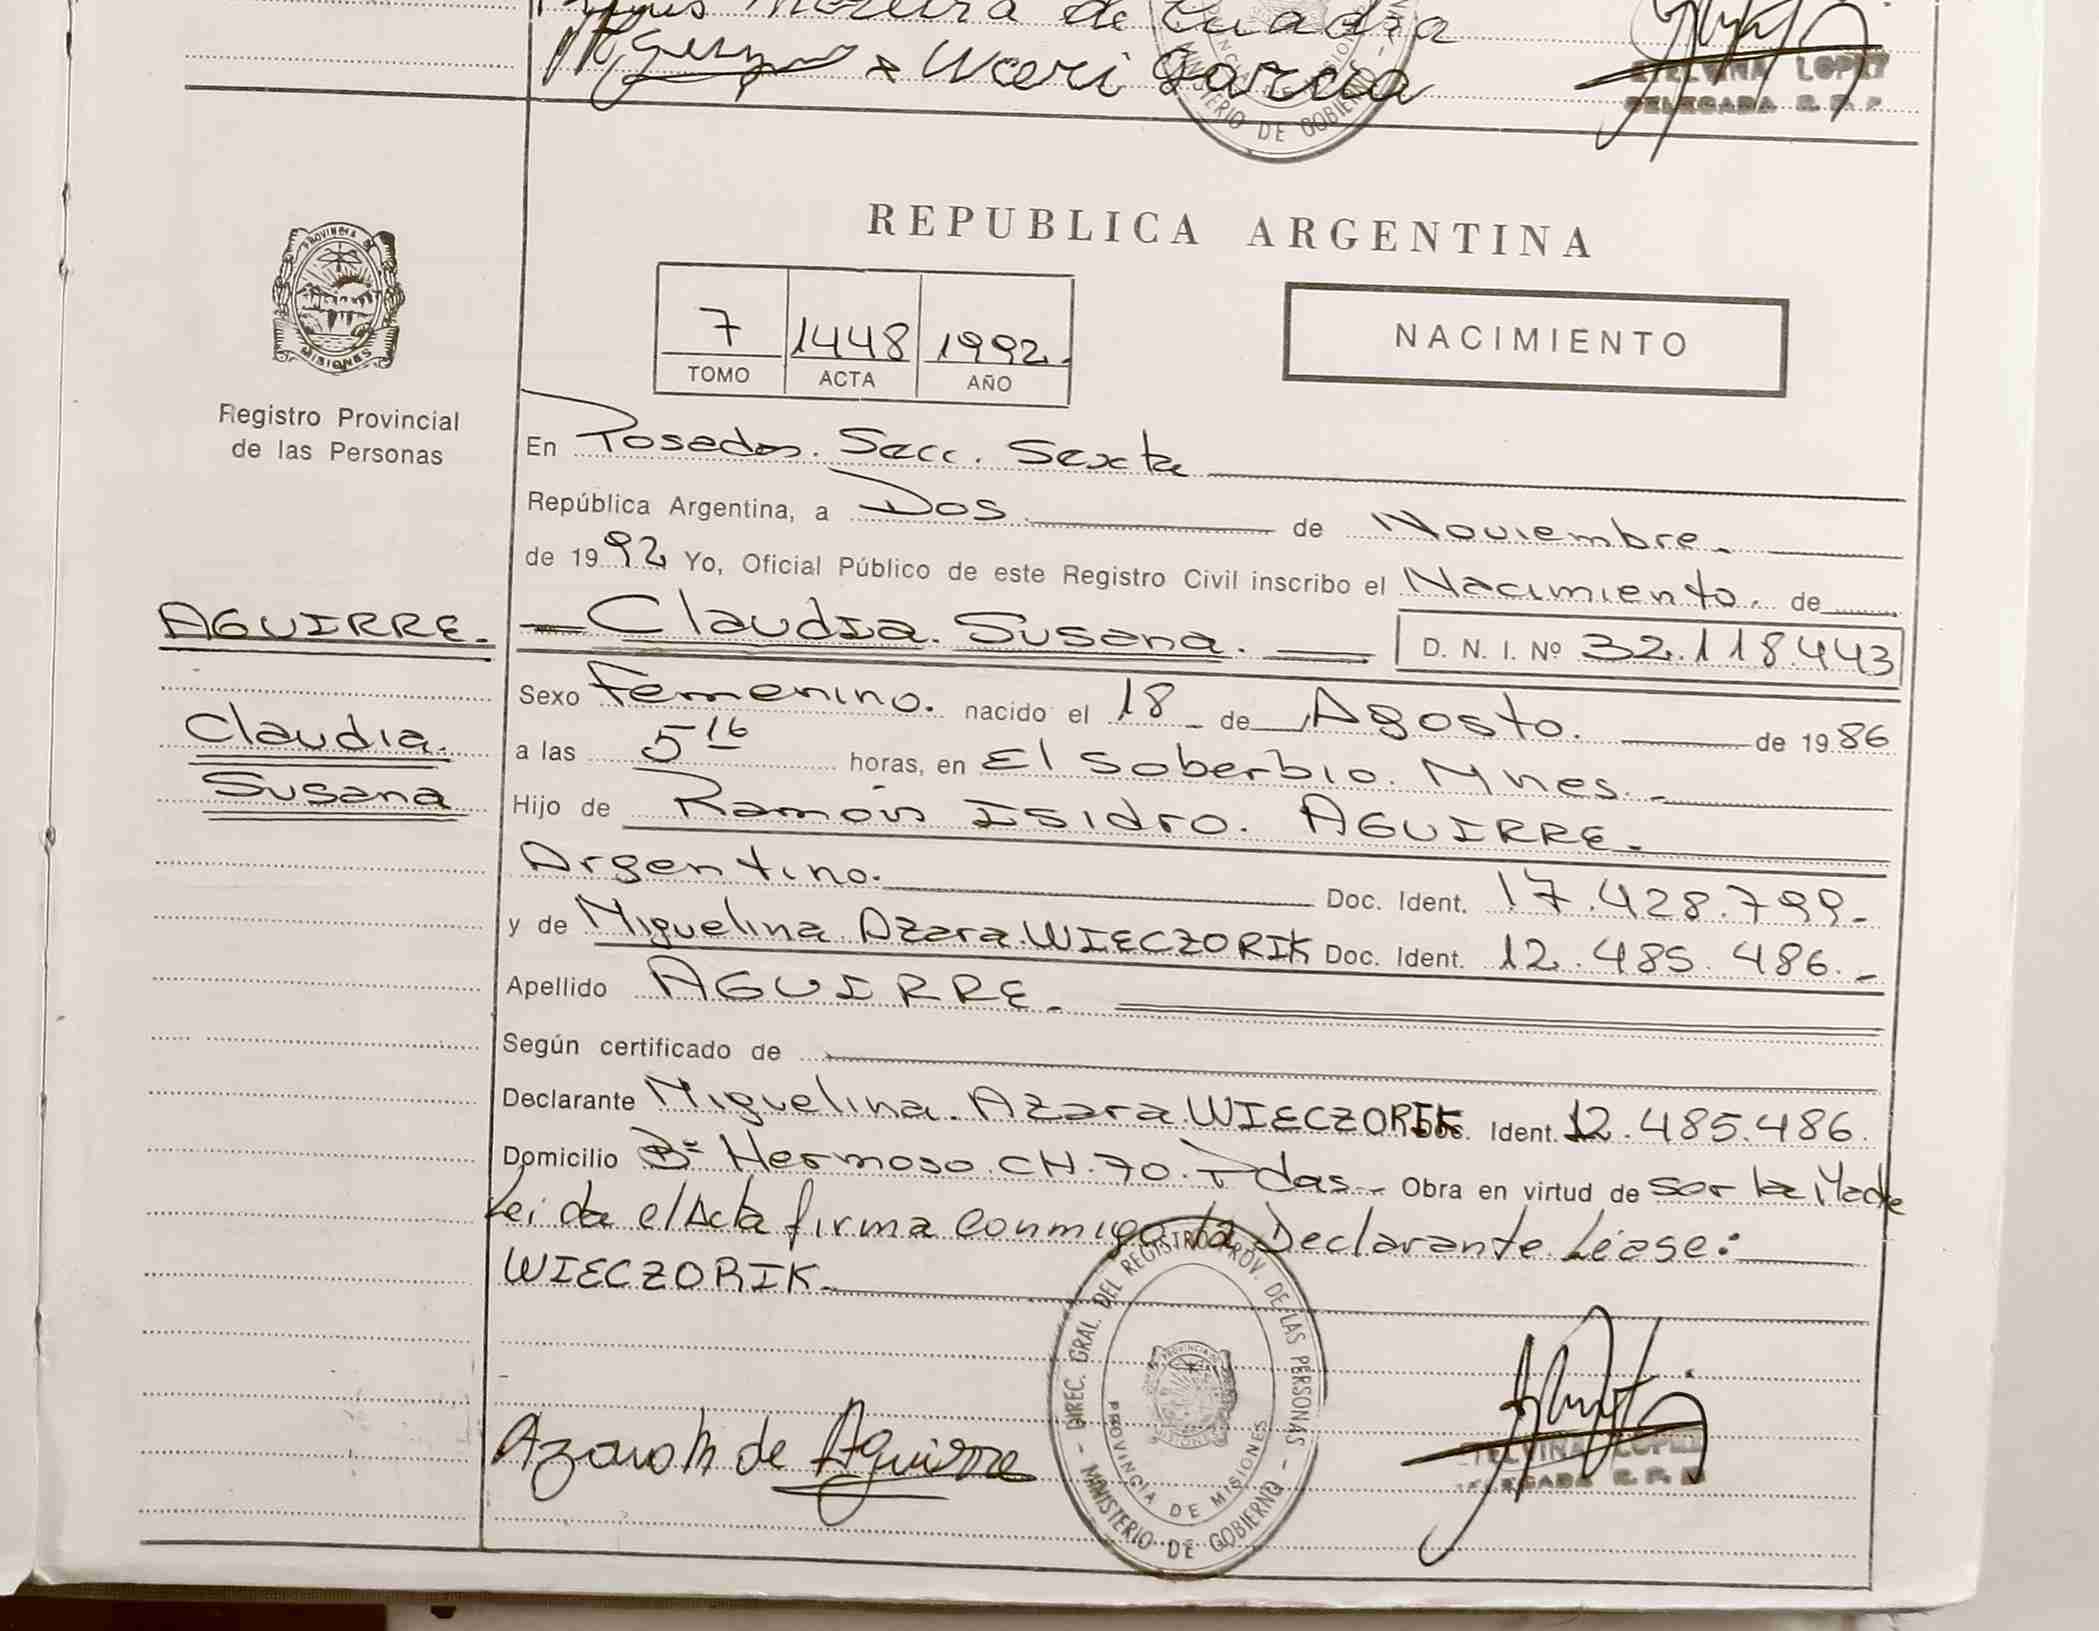 Moreira de Cuadra
Garcia
ETELVINA LOPEZ
DELEGADA R. P. P.
MINISTERIO DE GOBIERNO
REPUBLICA ARGENTINA
PROVINCIA DE
MISIONES
7 1448 1992.
TOMO ACTA AÑO
NACIMIENTO
Registro Provincial
de las Personas
En Posadas. Secc. Sexta
República Argentina, a Dos de Noviembre.
de 1992 Yo, Oficial Público de este Registro Civil inscribo el Nacimiento. de
AGUIRRE.
Claudia. Susana. D. N. I. Nº 32.118.443
Sexo Femenino. nacido el 18 de Agosto. de 1986
Claudia.
Susana
a las 5 16 horas, en El Soberbio. Mnes.
Hijo de Ramón Isidro. AGUIRRE.
Argentino. Doc. Ident. 17.428.799.
y de Miguelina Azara WIECZORIK Doc. Ident. 12.485.486.
Apellido AGUIRRE.
Según certificado de
Declarante Miguelina. Azara WIECZORIK Doc. Ident. 12.485.486.
Domicilio Bº Hermoso. CH. 70. Pdas. Obra en virtud de ser la Madre
Leida el Acta firma conmigo la Declarante. Léase:
WIECZORIK
DIREC. GRAL. DEL REGISTRO PROV. DE LAS PERSONAS - MINISTERIO DE GOBIERNO -
PROVINCIA DE MISIONES
de Aguirre
ETELVINA LOPEZ
DELEGADA R. P. P.